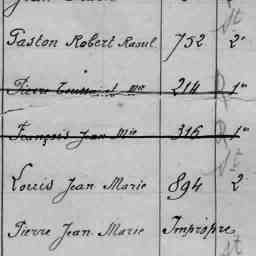 Gaston Robert Raoul 752 2e
Pierre Toussaint Mie 214 1er
François Jean Mie 316 1er
Louis Jean Marie 894 2
Pierre Jean Marie Impropre